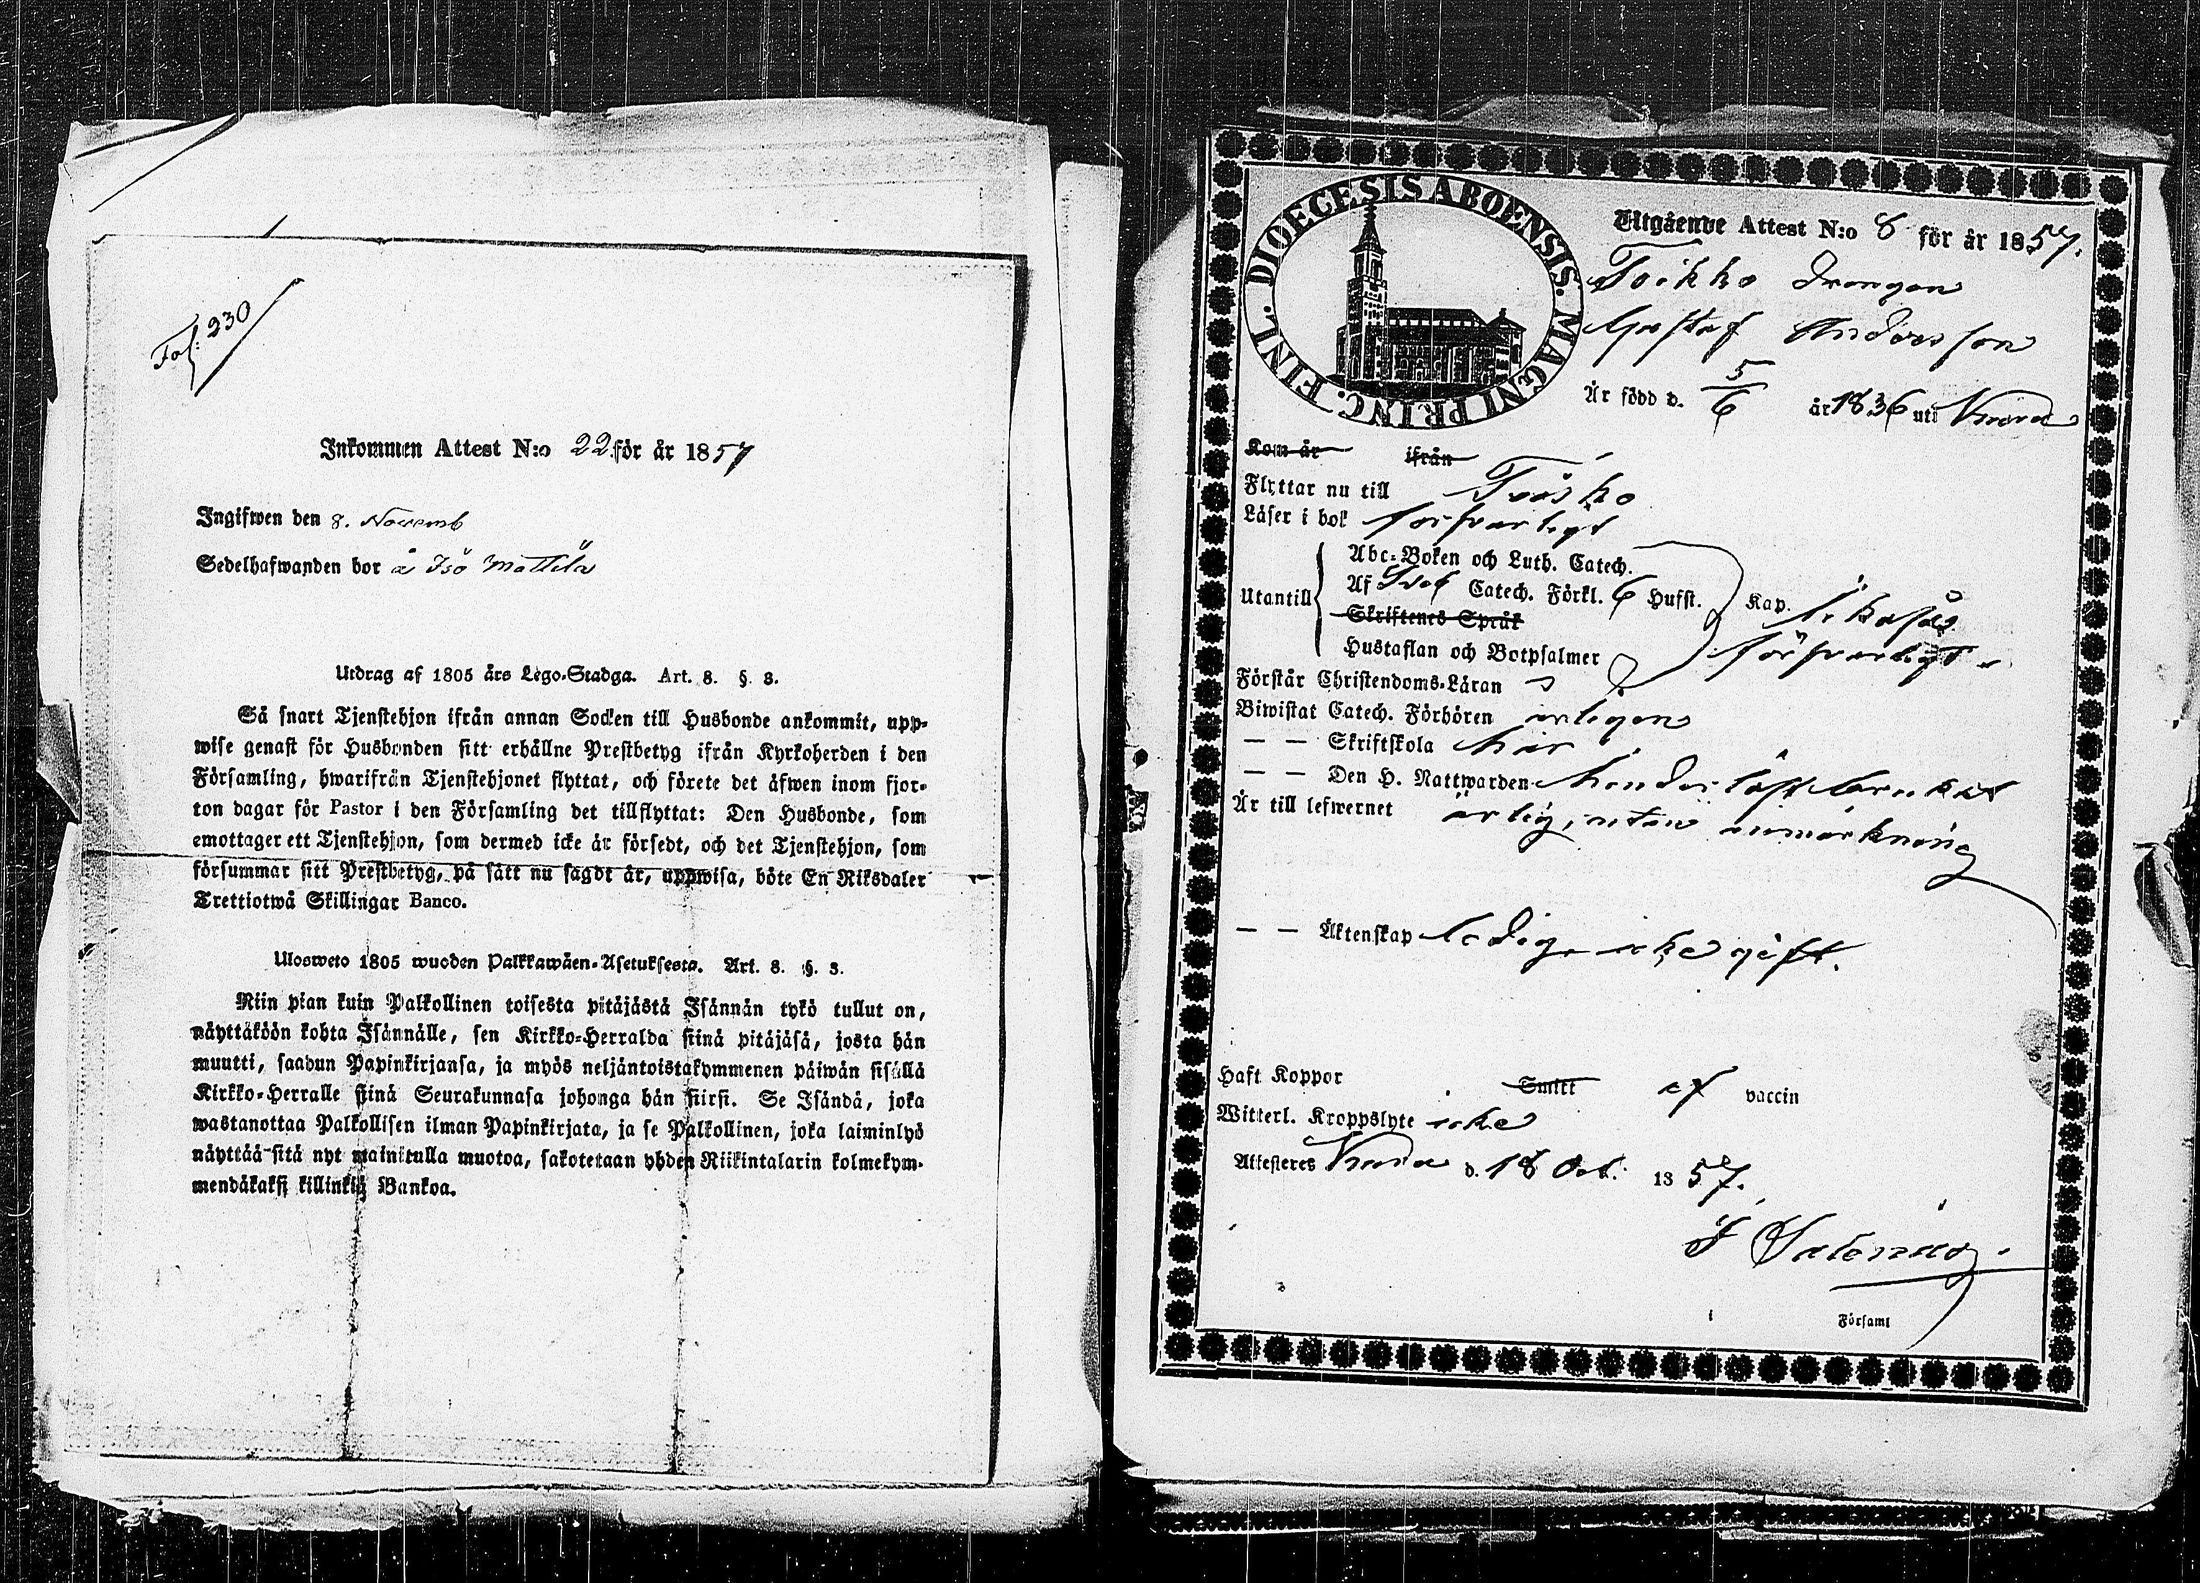 Fol: 230
Inkommen Attest N:o 22 för år 1857
Ingifwen den 8. Novemb
Sedelhafwanden bor å Iso Mattila
Utdrag af 1805 års Lego-Stadga. Art. 8. §. 3.
Så snart Tjenstehjon ifrån annan Socken till Husbonde ankommit, upp-
wise genast för Husbonden sitt erhållne Prestbetyg ifrån Kyrkoherden i den
Församling, hwarifrån Tjenstehjonet flyttat, och förete det äfwen inom fjor-
ton dagar för Pastor i den Församling det tillflyttat: Den Husbonde, som
emottager ett Tjenstehjon, som dermed icke är försedt, och det Tjenstehjon, som
försummar sitt Prestbetyg, på sätt nu sagdt är, uppwisa, böte En Riksdaler
Trettiotwå Skillingar Banco.
Ulosweto 1805 wuoden Palkkawäen-Asetuksesta. Art. 8. §. 3.
Niin pian kuin Palkollinen toisesta pitäjästä Isännän tykö tullut on,
näyttäköön kohta Isännälle, sen Kirkko-Herralda siinä pitäjäsä, josta hän
muutti, saadun Papinkirjansa, ja myös neljäntoistakymmenen päiwän sisällä
Kirkko-Herralle siinä Seurakunnasa johonga hän siirsi. Se Isändä, joka
wastanottaa Palkollisen ilman Papinkirjata, ja se Palkollinen, joka laiminlyö
näyttää sitä nyt mainitulla muotoa, sakotetaan yhden Riikintalarin kolmekym-
mendäkaksi killinkiä Bankoa.
DIOECESIS ABOENSIS. MAGNI PRINC. FINL.
Utgående Attest N:o 8 för år 1857.
Toikko Drengen
Gustaf Andersson
Är född d. 5/6 år 1836 uti
Kom år ifrån
Flyttar nu till
Läser i bok förswarligt
Utantill
Abc-Boken och Luth. Catech.
Af Catech. Förkl. 6 Hufst. Kap.
Skriftenes Språk
Hustaflan och Botpsalmer förswarligt
Förstår Christendoms-Läran
Biwistat Catech. Förhören årligen
— — Skriftskola här
— — Den H. Nattwarden
Är till lefwernet ärlig, utan anmärkning
— — Äktenskap ledig, icke gift.
Haft Koppor Smitt af vaccin
Witterl. Kroppslyte icke
Attesteras d. 18 Oct. 1857.
Församl